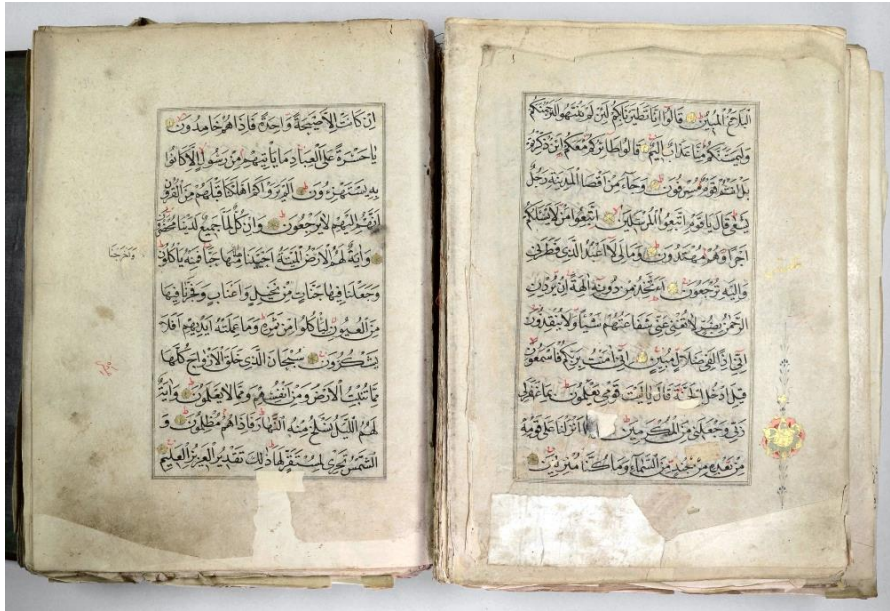 البلاغ المبين قالوا انا تطيرنا بكم لئن لم تنتهوا لنرجمنكم
وليمسنكم منا عذاب اليم قالوا طائركم معكم ائن ذكرتم
بل انتم قوم مسرفون وجاء من اقصا المدينة رجل
يسعى قال يا قوم اتبعوا المرسلين اتبعوا من لا يسئلكم
اجرا وهم مهتدون ومالي لا اعبد الذي فطرني
واليه ترجعون ءاتخذ من دونه الهة ان يردن
الرحمن بضر لا تغن عني شفاعتهم شيئا ولا ينقذون
اني اذا لفي ضلال مبين اني امنت بربكم فاسمعون
قيل ادخل الجنة قال يا ليت قومي يعلمون بما غفرلي
ربي وجعلني من المكرمين انزلنا على قومه
من بعده من جند من السماء وما كنا منزلين
ان كانت الا صيحة واحدة فاذا هم خامدون
يا حسرة على العباد ما ياتيهم من رسول الا كانوا
به يستهزءون الم يروا كم اهلكنا قبلهم من القرون
انهم اليهم لا يرجعون وان كل لما جميع لدينا محضرون
واية لهم الارض الميتة احييناها منها حبا فمنه ياكلون
واخرجنا
وجعلنا فيها جنات من نخيل واعناب وفجرنا فيها
من العيون لياكلوا من ثمره وما عملته ايديهم افلا
يشكرون سبحان الذي خلق الازواج كلها
مما تنبت الارض ومن انفسهم ومما لا يعلمون واية
لهم الليل نسلخ منه النهار فاذا هم مظلمون و
الشمس تجري لمستقر لها ذلك تقدير العزيز العليم